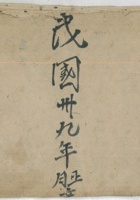 民國卅九年
正月